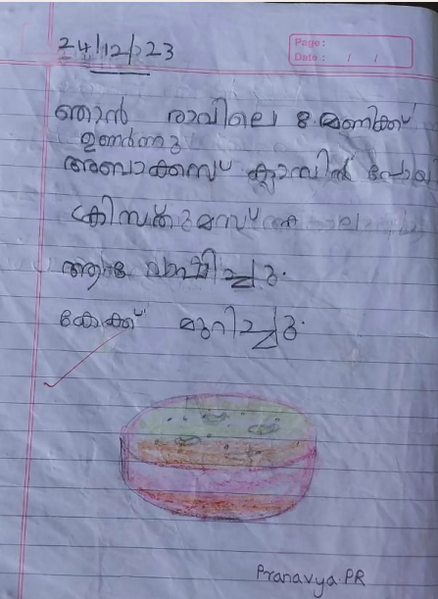 24/12/23
Page:
Date: / /
ഞാൻ രാവിലെ 8 മണിക്ക്
ഉണർന്നു
അബാക്കസ് ക്ലാസിൽ പോയി
ക്രിസ്തുമസ്
ആഘോഷിച്ചു.
കേക്ക് മുറിച്ചു.
Pranavya.PR